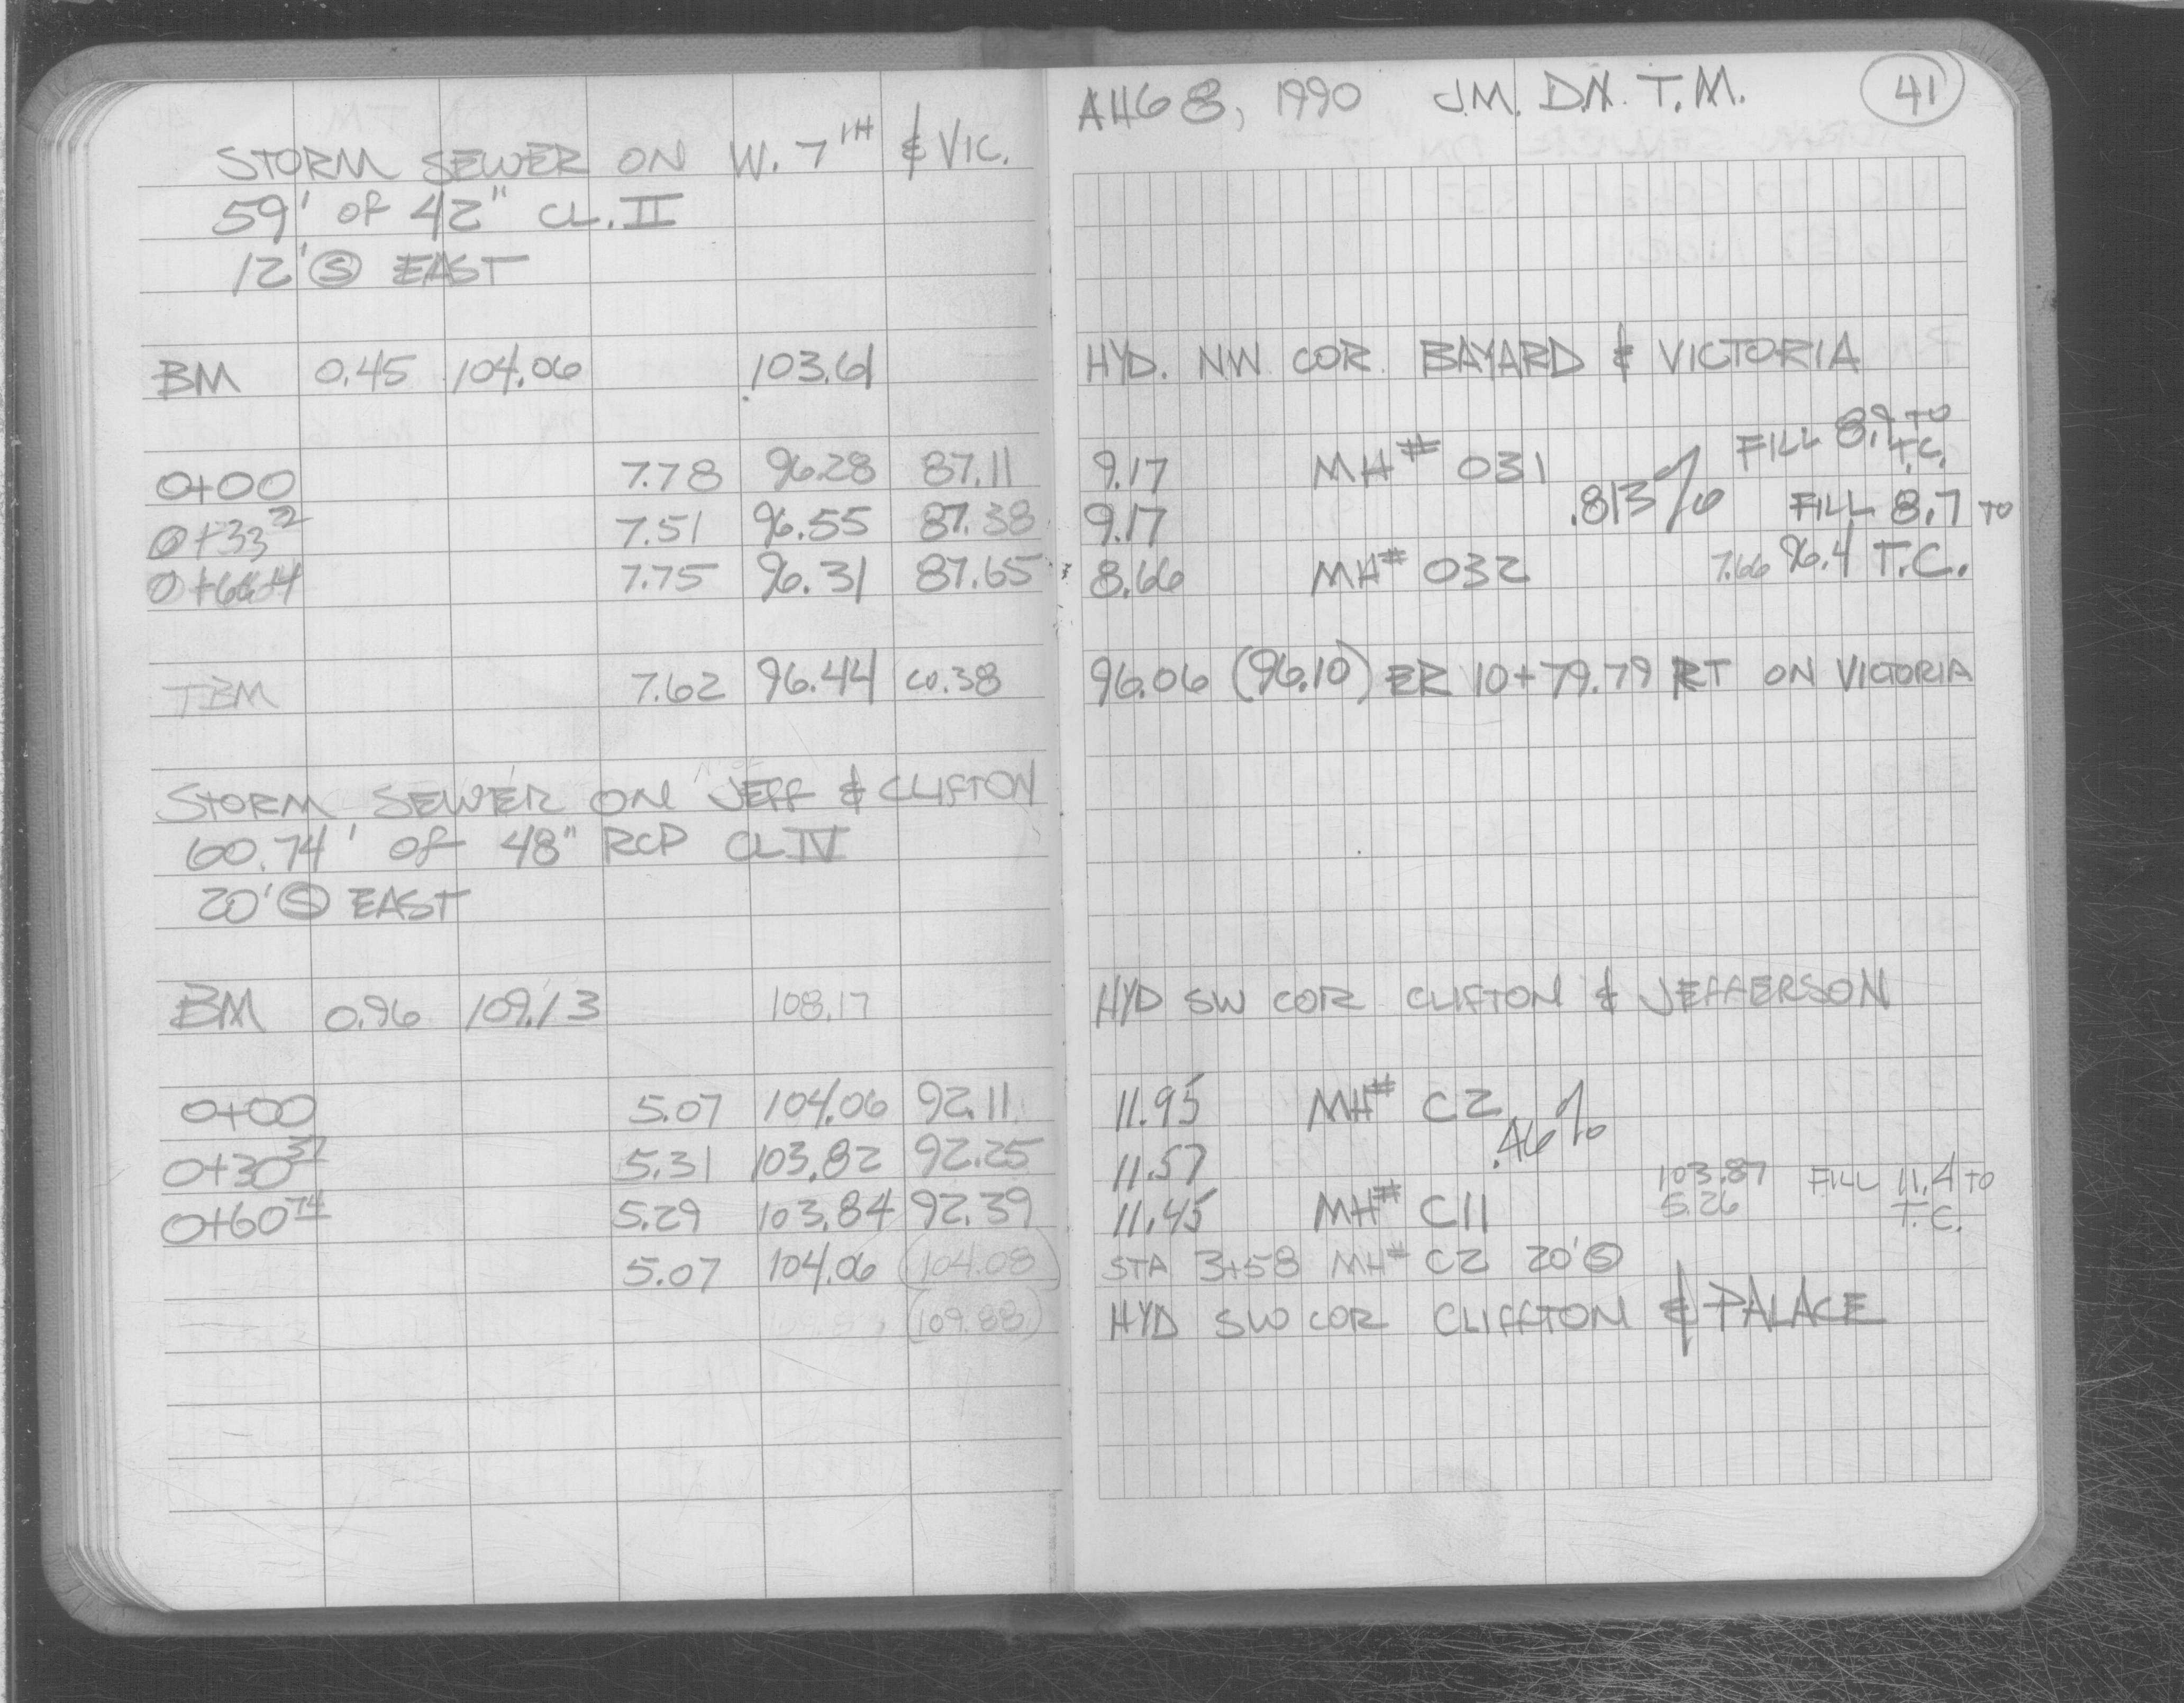 STORM SEWER ON W. 7TH & VIC.
59' OF 42" CL. II
12' Ⓢ EAST
BM 0.45 104.06 103.61
0+00 7.78 96.28 87.11
0+33 7.51 96.55 87.38
7.75 96.31 87.65
TBM 7.62 96.44 C0.38
STORM SEWER ON JEFF & CLIFTON
60.74' OF 48" RCP CL IV
20' Ⓢ EAST
BM 0.96 109.13 108.17
0+00 5.07 104.06 92.11
0+30 37 5.31 103.82 92.25
0+60 74 5.29 103.84 92.39
5.07 104.06 (104.08)
(109.88)
AUG 8, 1990 J.M. D.N. T.M. 41
HYD. NW COR. BAYARD & VICTORIA
9.17 MH# 031 .813% FILL 8.9 TO T.C.
9.17 FILL 8.7 TO
8.66 MH# 032 7.66 96.4 T.C.
96.06 (96.10) ER 10+79.79 RT ON VICTORIA
HYD SW COR CLIFTON & JEFFERSON
11.95 MH# C2 .46%
11.57 103.87 FILL 11.4 TO
11.45 MH# C11 5.26 T.C.
STA 3+58 MH# C2 20' Ⓢ
HYD SW COR CLIFFTON & PALACE